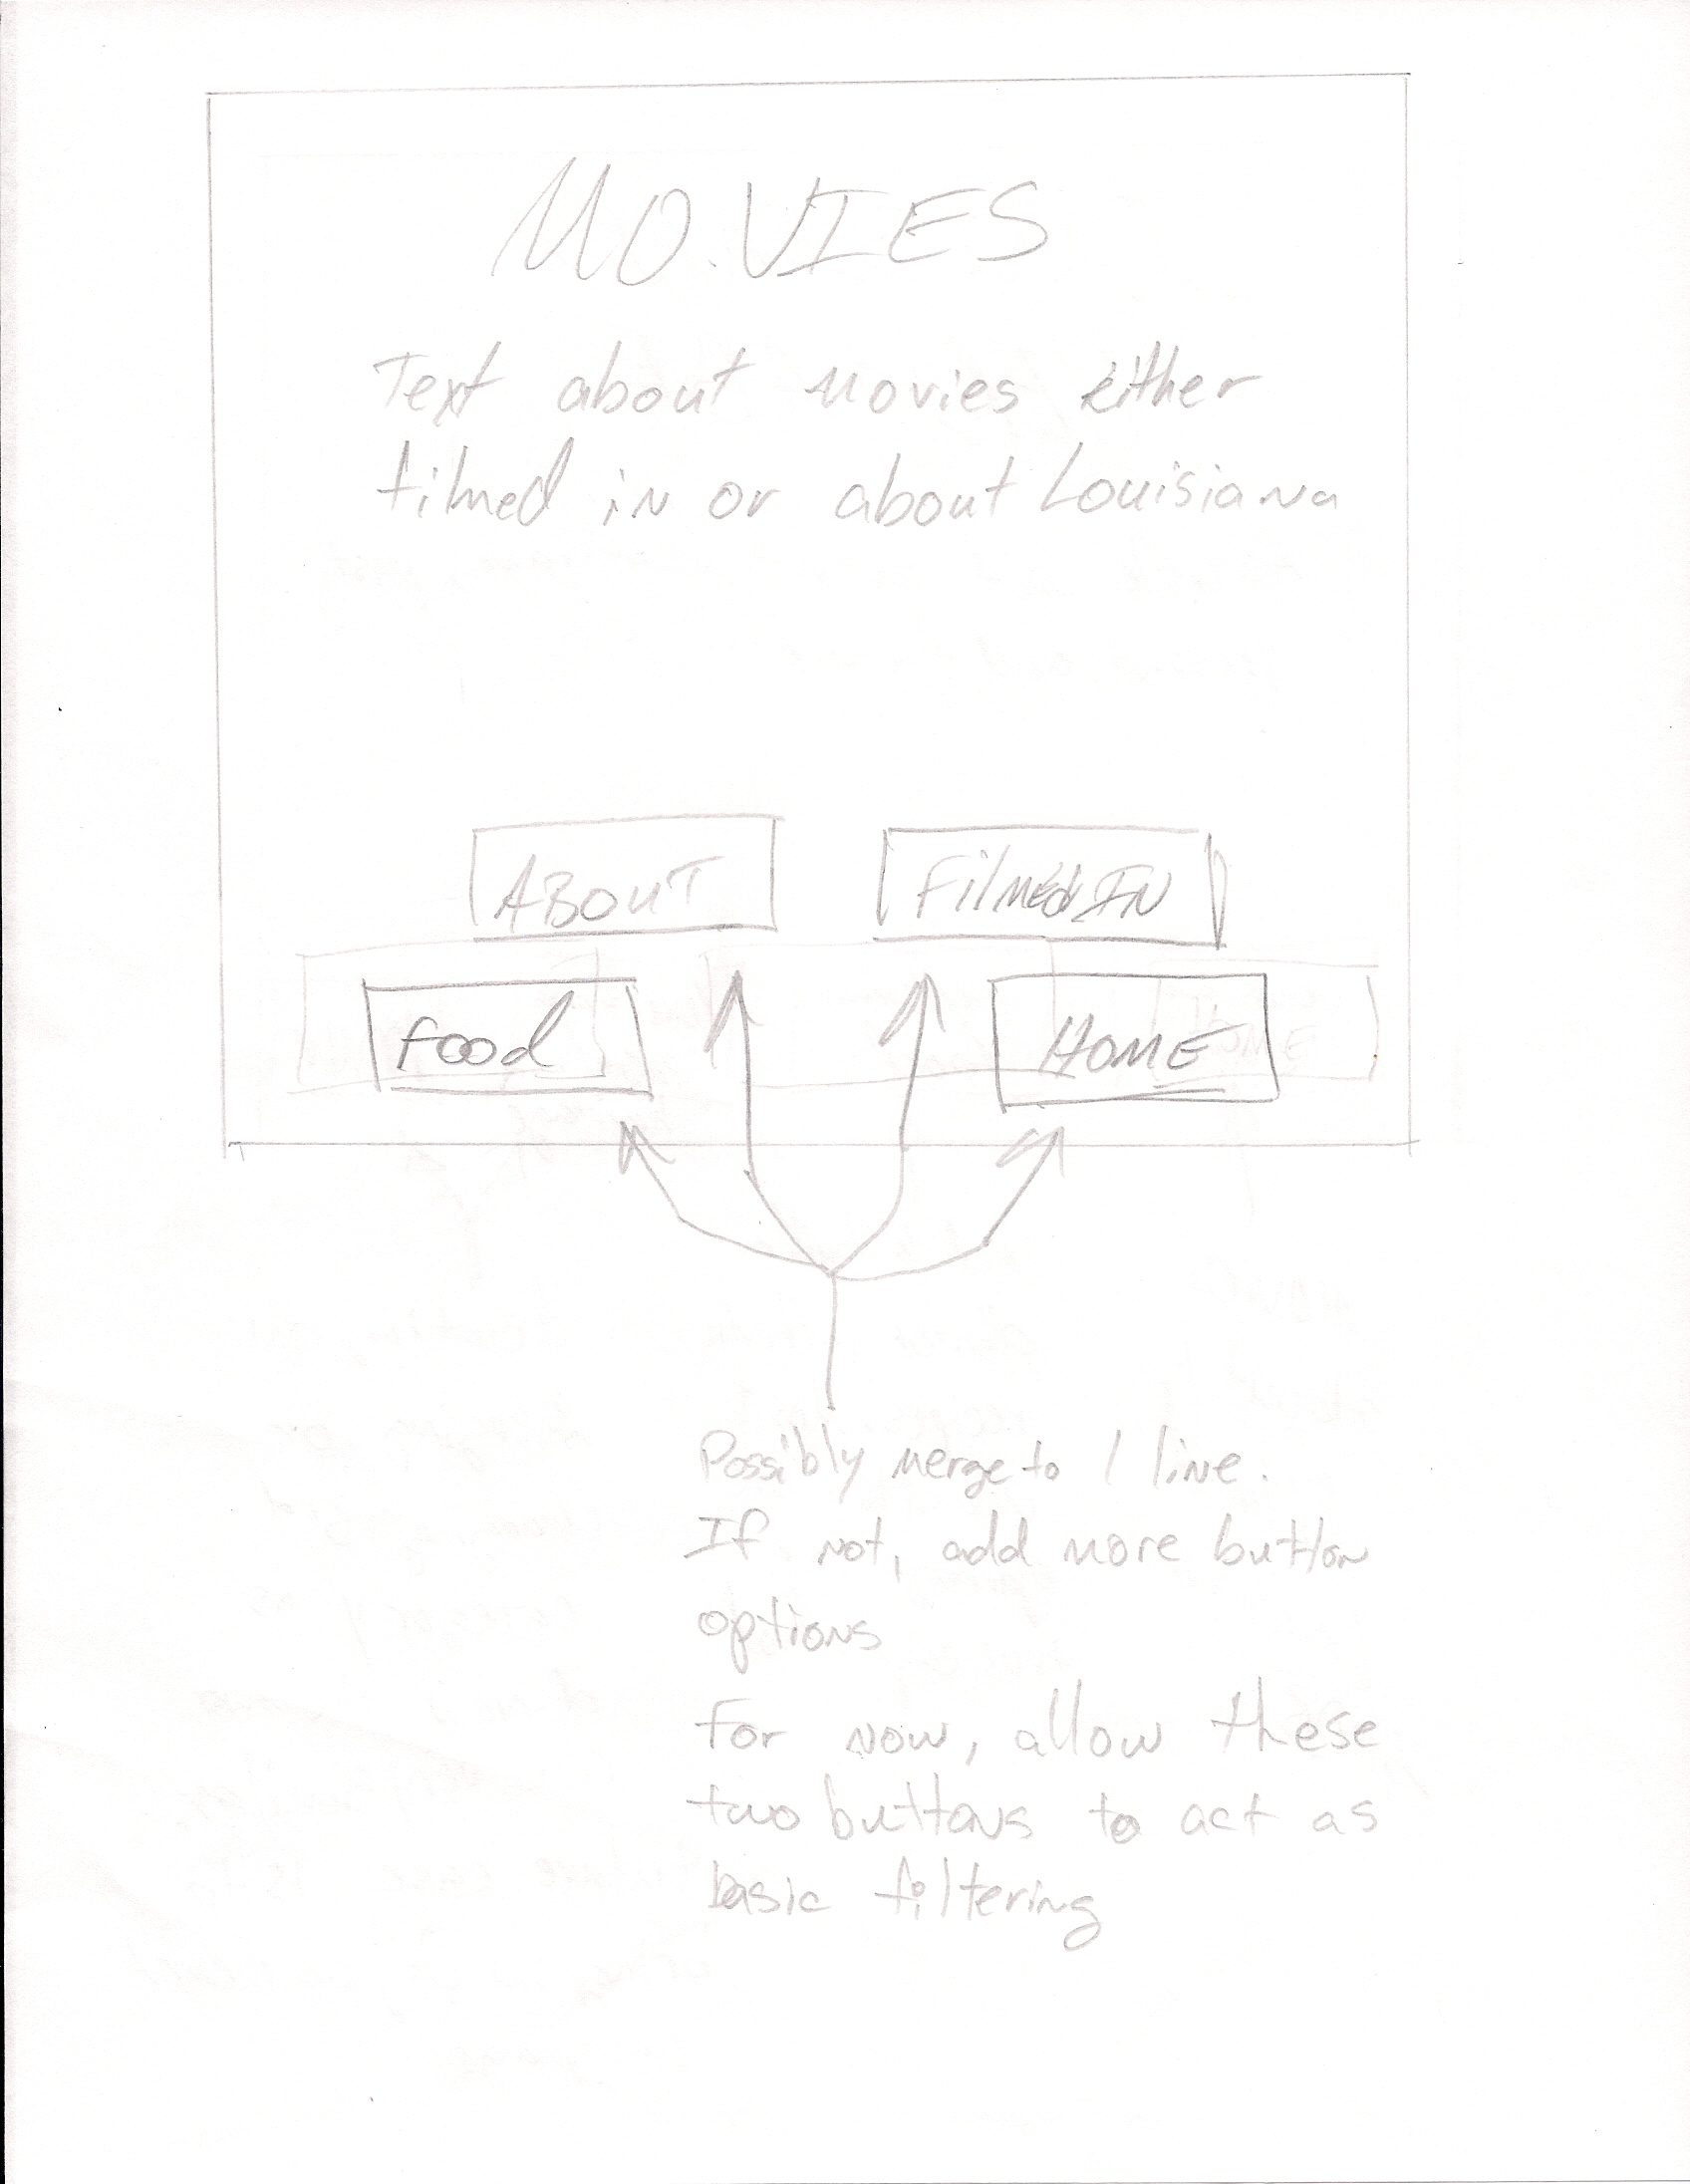 MO.VIES
Text about movies either
filmed in or about Louisiana
ABOUT
FilmedIN
food
HOME
HOME
Possibly merge to 1 line.
If not, add more button
options
for now, allow these
two buttons to act as
basic filtering